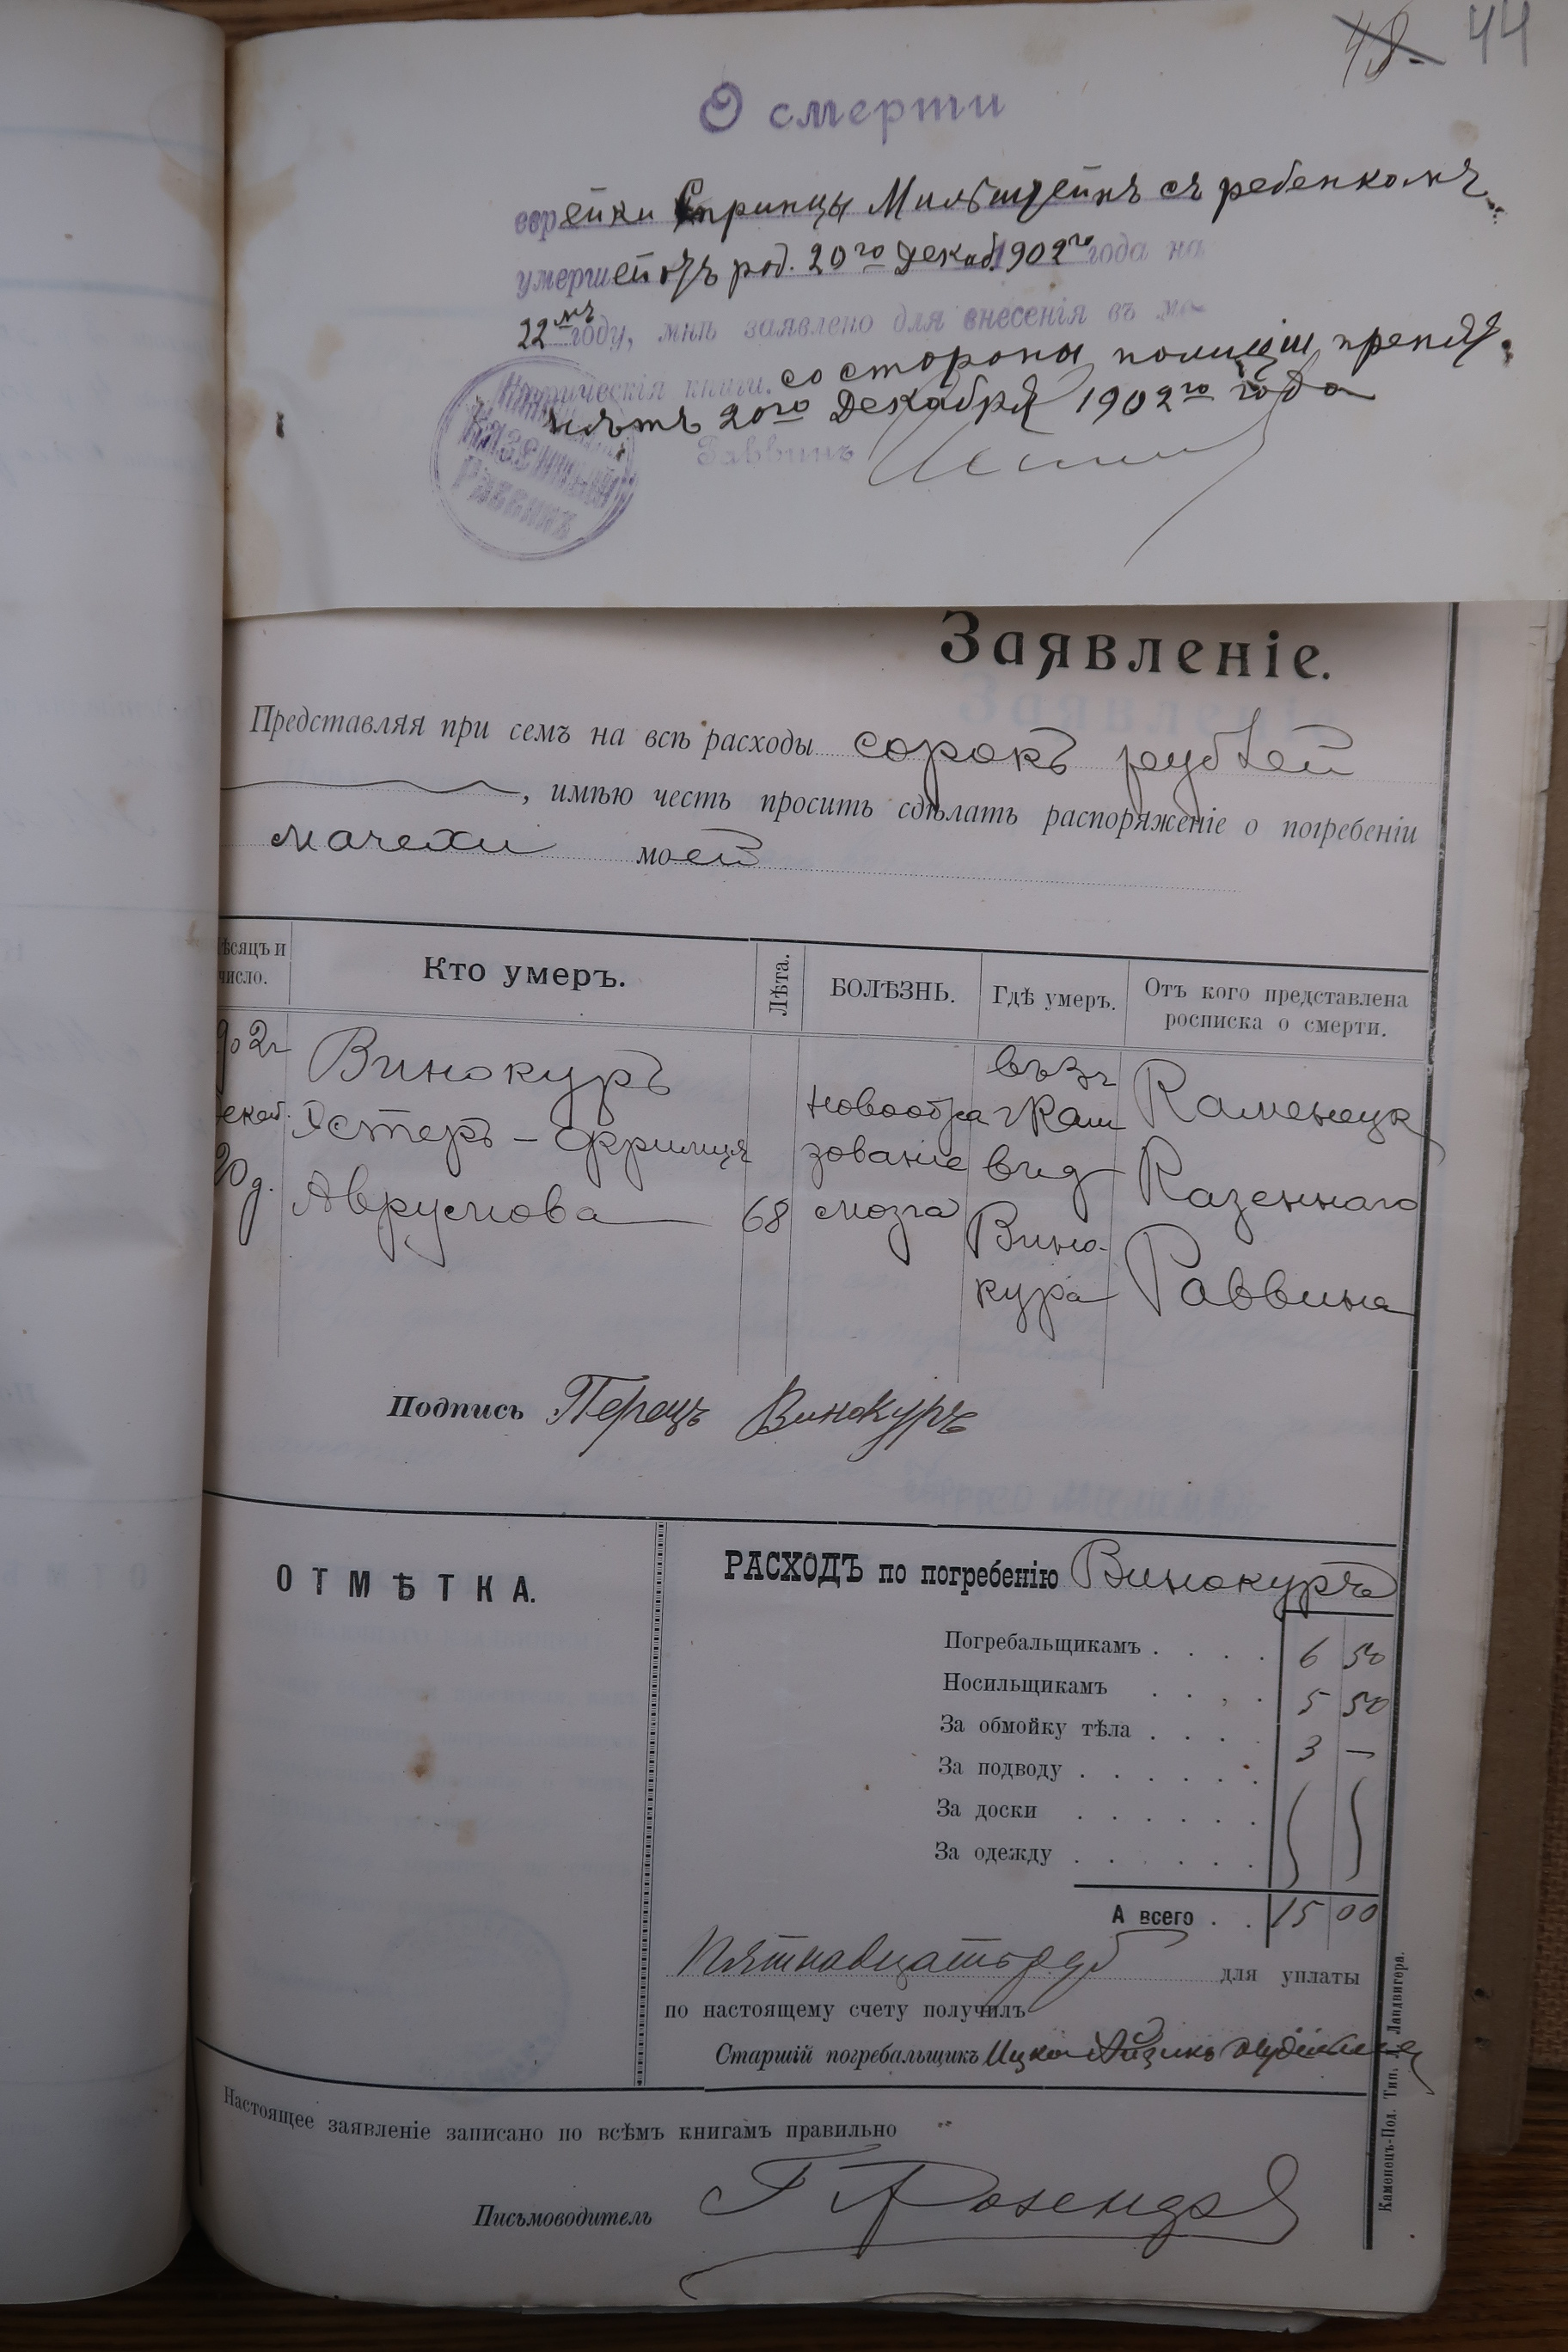 48. 44
О смерти
еврейки Спринцы Мильштейнъ съ ребенкомъ
умершей отъ род. 20го Декаб. 1902го года на
22мъ году, мнѣ заявлено для внесенія въ ме-
трическія книги. со стороны полиціи препят.
нѣтъ 20го Декабря 1902го года
Раввинъ
Казенный
Раввинъ
Заявленіе.
Представляя при семъ на всѣ расходы сорокъ рублей
, имѣю честь просить сдѣлать распоряженіе о погребеніи
мачехи моей
ѣсяцъ и число. Кто умеръ. Лѣта. БОЛѢЗНЬ. Гдѣ умеръ. Отъ кого представлена росписка о смерти.
902г Винокуръ въ
екаб. Эстеръ-Фримця новообра Каменецк
20 д. Аврумова 68 зованіе Казеннаго
мозга Вино- Раввина
кура
Подпись Перецъ Винокуръ
ОТМѢТКА.
РАСХОДЪ по погребенію Винокуръ
Погребальщикамъ . . . . 6 50
Носильщикамъ . . . . 5 50
За обмойку тѣла . . . . 3 —
За подводу . . . . . .
За доски . . . . . .
За одежду . . . . . .
А всего . . 15 00
Пятнадцать руб для уплаты
по настоящему счету получилъ
Старшій погребальщикъ Ицко Айзикъ
Настоящее заявленіе записано по всѣмъ книгамъ правильно
Письмоводитель
Каменецъ-Под. Тип. Ландвигера.